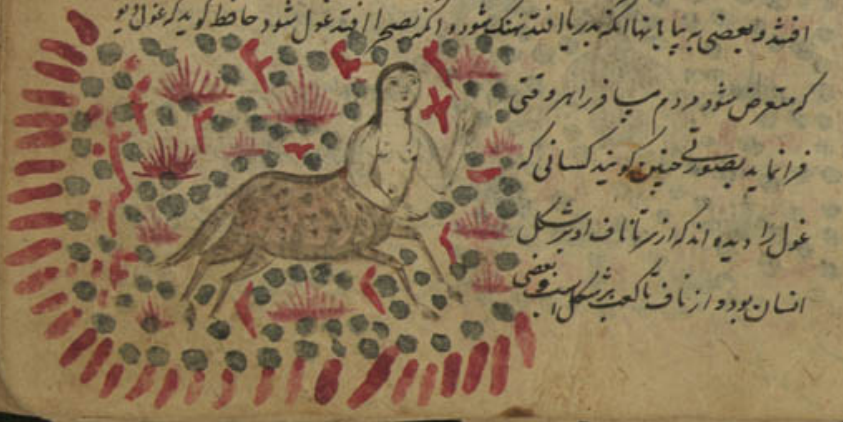 افتد و بعضی به بیابانها آنکه بدریا افتد نهنگ شود و آنکه بصحرا افتد غول شود حافظ گوید که غول دیو
که متعرض شود مردم مسافر را هر وقتی
فرا نماید بصورتی چنین گویند کسانی که
غول را دیده اند که از سر تا ناف او بر شکل
انسان بود و از ناف تا کعب بر شکل اسب و بعضی